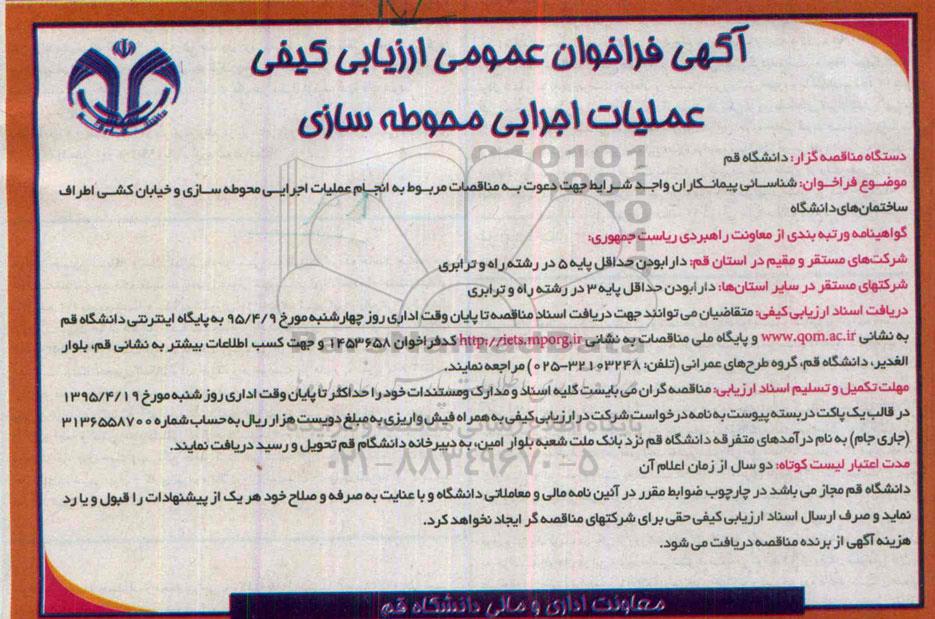 آگهی فراخوان عمومی ارزیابی کیفی
عملیات اجرایی محوطه سازی
دستگاه مناقصه گزار: دانشگاه قم
موضوع فراخوان: شناسائی پیمانکاران واجد شرایط جهت دعوت به مناقصات مربوط به انجام عملیات اجرایی محوطه سازی و خیابان کشی اطراف
ساختمان‌های دانشگاه
گواهینامه ورتبه بندی از معاونت راهبردی ریاست جمهوری:
شرکت‌های مستقر و مقیم در استان قم: دارا بودن حداقل پایه ۵ در رشته راه و ترابری
شرکتهای مستقر در سایر استان‌ها: دارا بودن حداقل پایه ۳ در رشته راه و ترابری
دریافت اسناد ارزیابی کیفی: متقاضیان می توانند جهت دریافت اسناد مناقصه تا پایان وقت اداری روز چهارشنبه مورخ ۹۵/۴/۹ به پایگاه اینترنتی دانشگاه قم
به نشانی www.qom.ac.ir و پایگاه ملی مناقصات به نشانی http://iets.mporg.ir کدفراخوان ۱۴۵۳۶۵۸ و جهت کسب اطلاعات بیشتر به نشانی قم، بلوار
الغدیر، دانشگاه قم، گروه طرح‌های عمرانی (تلفن: ۳۲۱۰۳۲۴۸-۰۲۵) مراجعه نمایند.
مهلت تکمیل و تسلیم اسناد ارزیابی: مناقصه گران می بایست کلیه اسناد و مدارک ومستندات خود را حداکثر تا پایان وقت اداری روز شنبه مورخ ۱۳۹۵/۴/۱۹
در قالب یک پاکت دربسته پیوست به نامه درخواست شرکت در ارزیابی کیفی به همراه فیش واریزی به مبلغ دویست هزار ریال به حساب شماره ۳۱۳۶۵۵۸۷۰۰
(جاری جام) به نام درآمدهای متفرقه دانشگاه قم نزد بانک ملت شعبه بلوار امین، به دبیرخانه دانشگام قم تحویل و رسید دریافت نمایند.
مدت اعتبار لیست کوتاه: دو سال از زمان اعلام آن
دانشگاه قم مجاز می باشد در چارچوب ضوابط مقرر در آئین نامه مالی و معاملاتی دانشگاه و با عنایت به صرفه و صلاح خود هر یک از پیشنهادات را قبول و یا رد
نماید و صرف ارسال اسناد ارزیابی کیفی حقی برای شرکتهای مناقصه گر ایجاد نخواهد کرد.
هزینه آگهی از برنده مناقصه دریافت می شود.
معاونت اداری و مالی دانشگاه قم
ParsNamadData
پایگاه اطلاع رسانی مناقصه و مزایده
۰۲۱-۸۸۳۴۹۶۷۰-۵